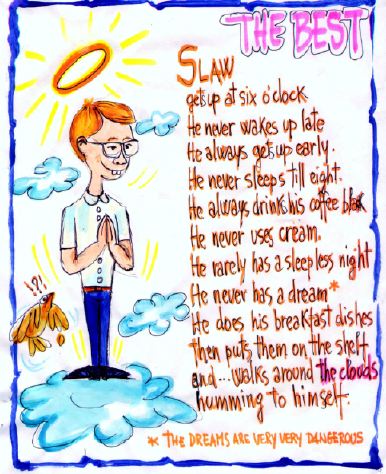 THE BEST
SLAW
gets up at six o'clock.
He never wakes up late
He always gets up early.
He never sleeps till eight.
He always drinks his coffee black
He never uses cream.
He rarely has a sleepless night
He never has a dream*
He does his breakfast dishes
then puts them on the shelf
and... walks around the clouds
humming to himself.
!?!
* THE DREAMS ARE VERY VERY DANGEROUS